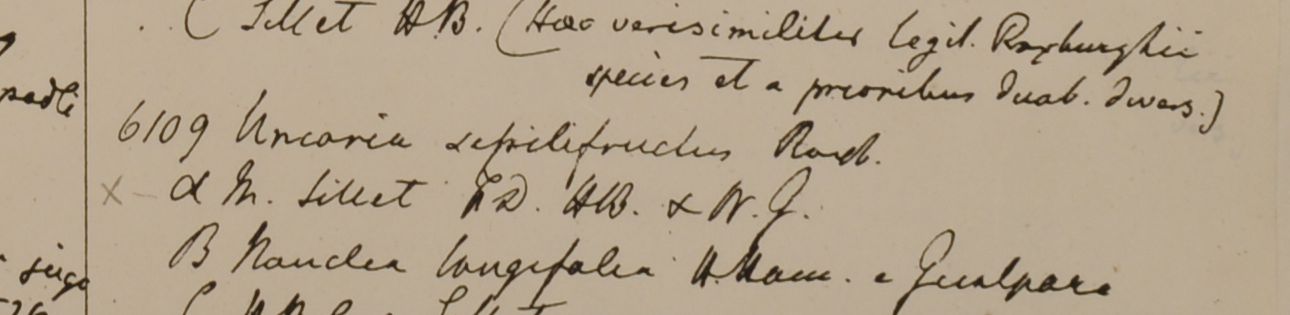 ( Sillet H.B. (Haec verisimiliter legit. Roxburghii
species et a prioribus duab. divers.)
6109 Uncaria sessilifructus Roxb.
α M. Sillet F.D. H.B. & W. G.
β Nauclea longifolia H. Ham. e Gualpara